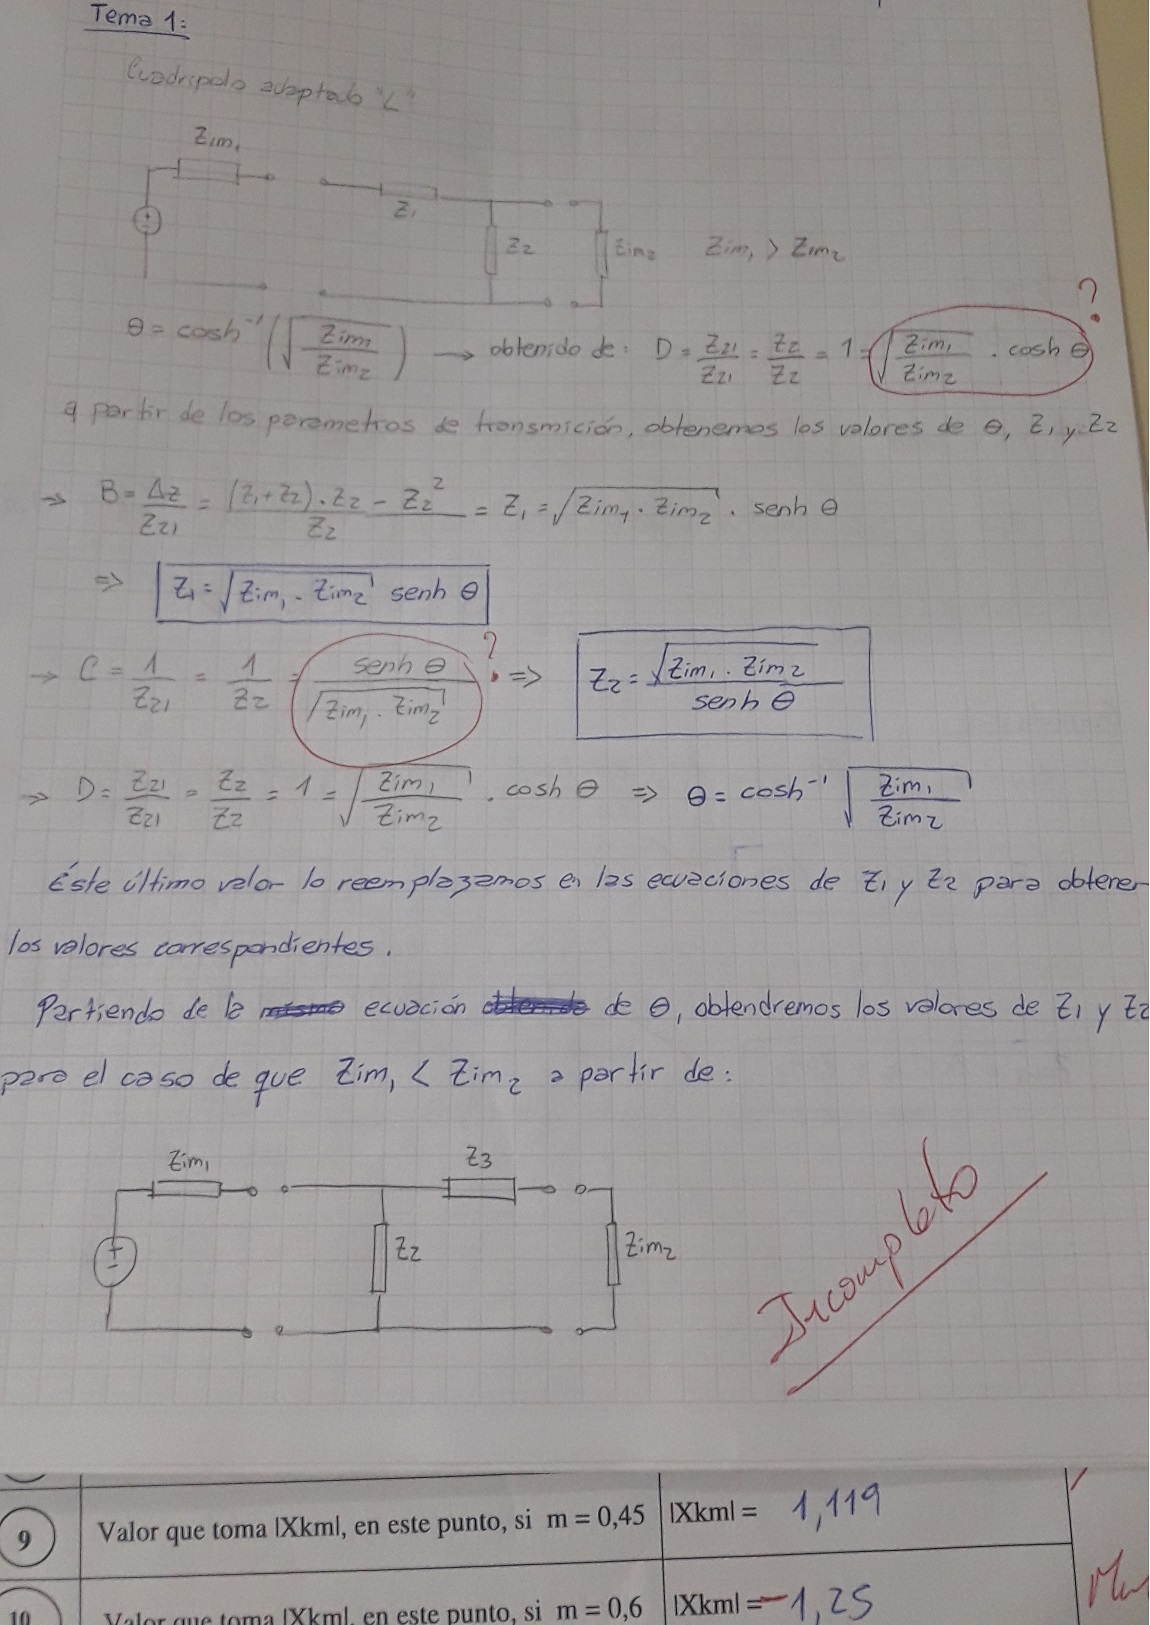 Tema 1:
Cuadripolo adaptado "L"
Zim1
Z1
Z2
Zim2
Zim1 > Zim2
?
θ = cosh⁻¹ (√(Zim1/Zim2)) → obtenido de: D = Z21/Z21 = Z2/Z2 = 1 = √(Zim1/Zim2) . cosh θ
a partir de los parametros de transmición, obtenemos los valores de θ, Z1 y Z2
→ B = ΔZ/Z21 = ((Z1+Z2).Z2 - Z2²)/Z2 = Z1 = √(Zim1 . Zim2) . senh θ
⇒ Z1 = √(Zim1 . Zim2) senh θ
→ C = 1/Z21 = 1/Z2 = senh θ/√(Zim1 . Zim2) ? ⇒ Z2 = √(Zim1 . Zim2)/senh θ
→ D = Z21/Z21 = Z2/Z2 = 1 = √(Zim1/Zim2) . cosh θ ⇒ θ = cosh⁻¹ √(Zim1/Zim2)
Éste último valor lo reemplazamos en las ecuaciones de Z1 y Z2 para obtener
los valores correspondientes.
Partiendo de la mismo ecuación obtenido de θ, obtendremos los valores de Z1 y Z2
para el caso de que Zim1 < Zim2 a partir de:
Zim1
Z3
Z2
Zim2
Incompleto
9 Valor que toma |Xkm|, en este punto, si m = 0,45 |Xkm| = 1,119
10 Valor que toma |Xkm|, en este punto, si m = 0,6 |Xkm| = -1,25